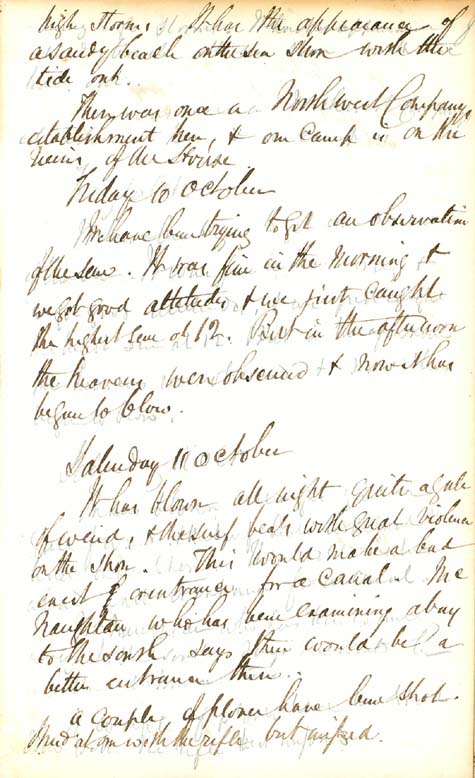 high storms. It has the appearance of
a sandy beach on the sea shore with the
tide out.
There was once a North West Company
establishment here, & our camp is on the
ruins of the House
Friday 10 October
We have been trying to get an observation
of the sun. It was fine in the morning &
we got good altitudes & we just caught
the highest sun at 12. But in the afternoon
the heavens were obscured & now it has
begun to blow.
Saturday 11 October
It has blown all night quite a gale
of wind, & the surf beats with great violence
on the shore. This would make a bad
entrance for a canal. Mc
Naughtan who has been examining a bay
to the south says there would be a
better entrance there.
a couple of plover have been shot.
at one with the rifle but missed.